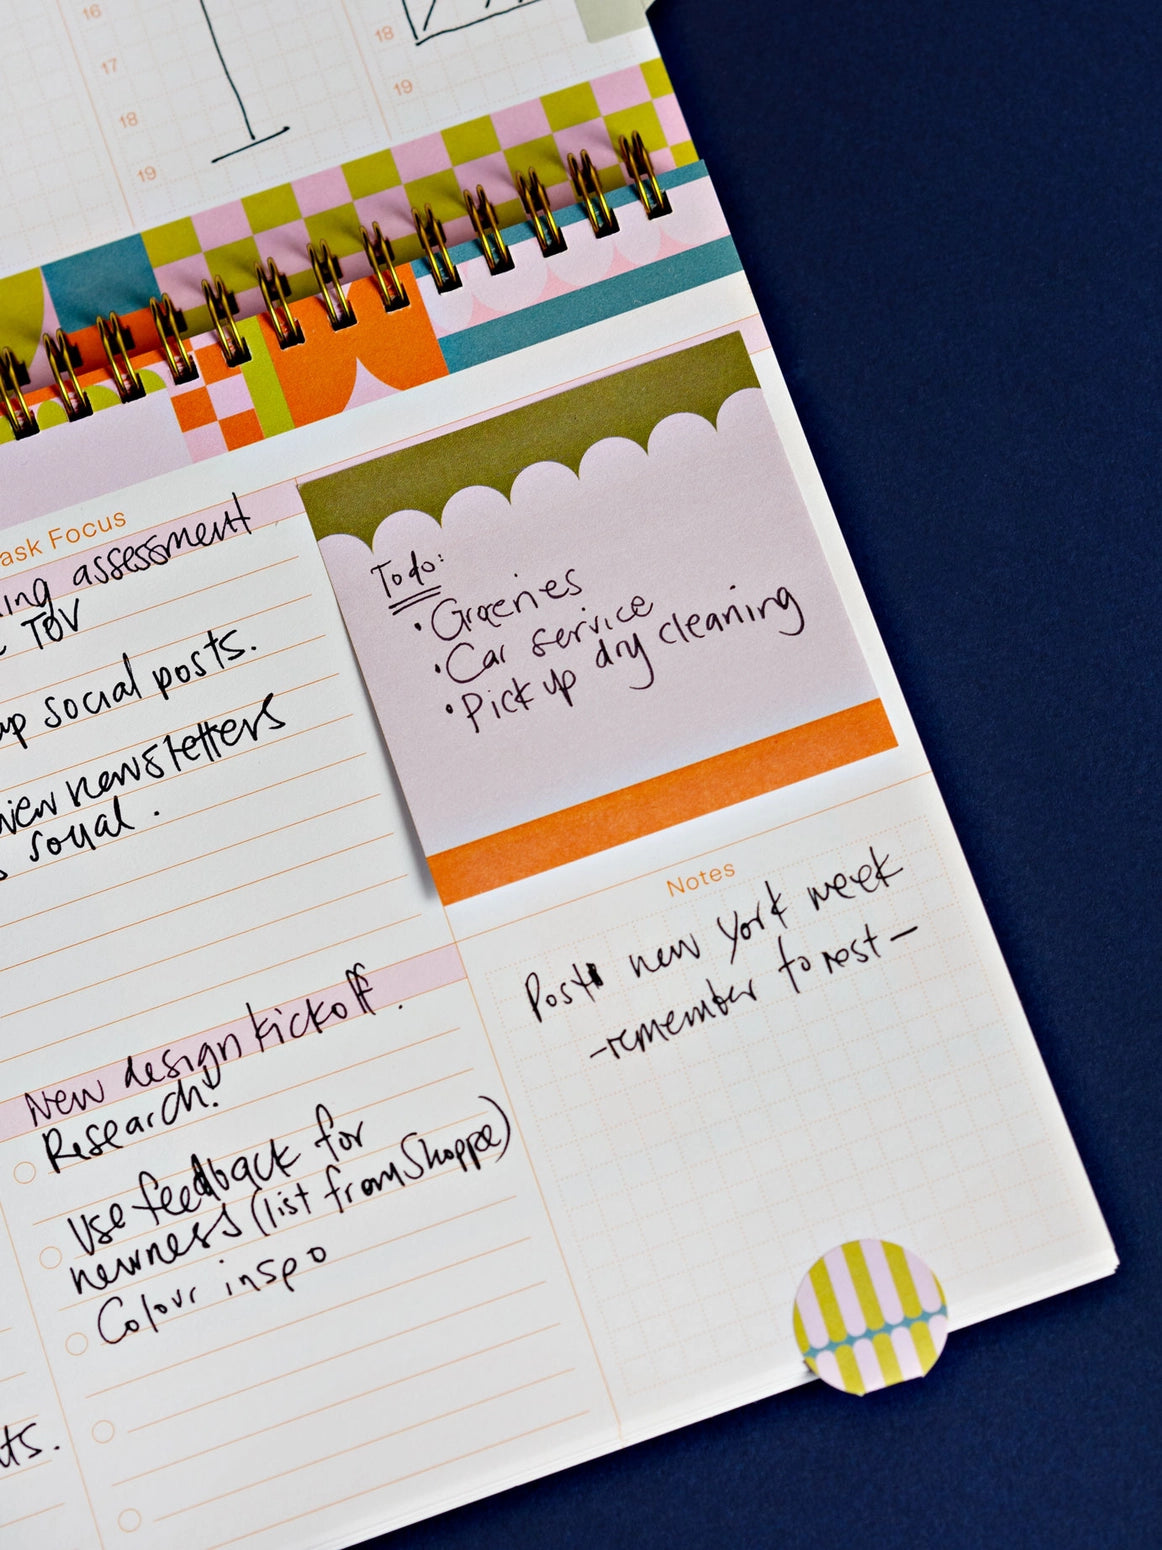 16
17
18
19
18
19
ask Focus
ing assessment
TOV
social posts.
newsletters
social.
To do:
• Groceries
• Car service
• Pick up dry cleaning
Notes
Post new york week
- remember to rest -
New design kickoff.
Research:
Use feedback for
newness (list from Shoppe)
Colour inspo
ts.